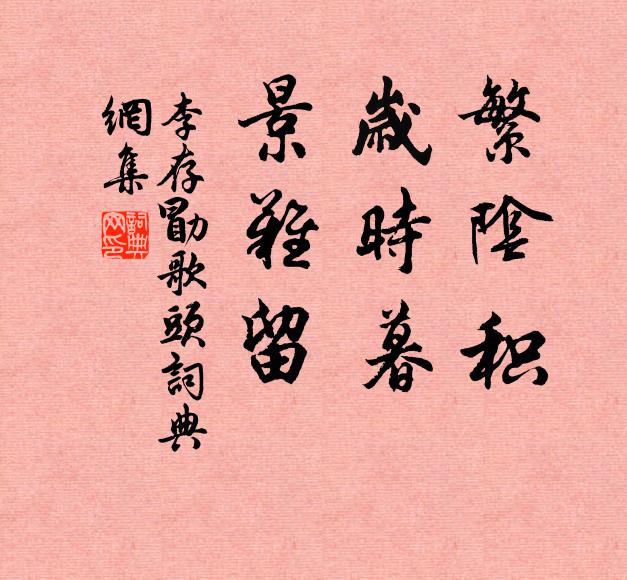 繁陰积
歲時暮
景難留
李存勖歌頭詞典
網集
詞典
网印